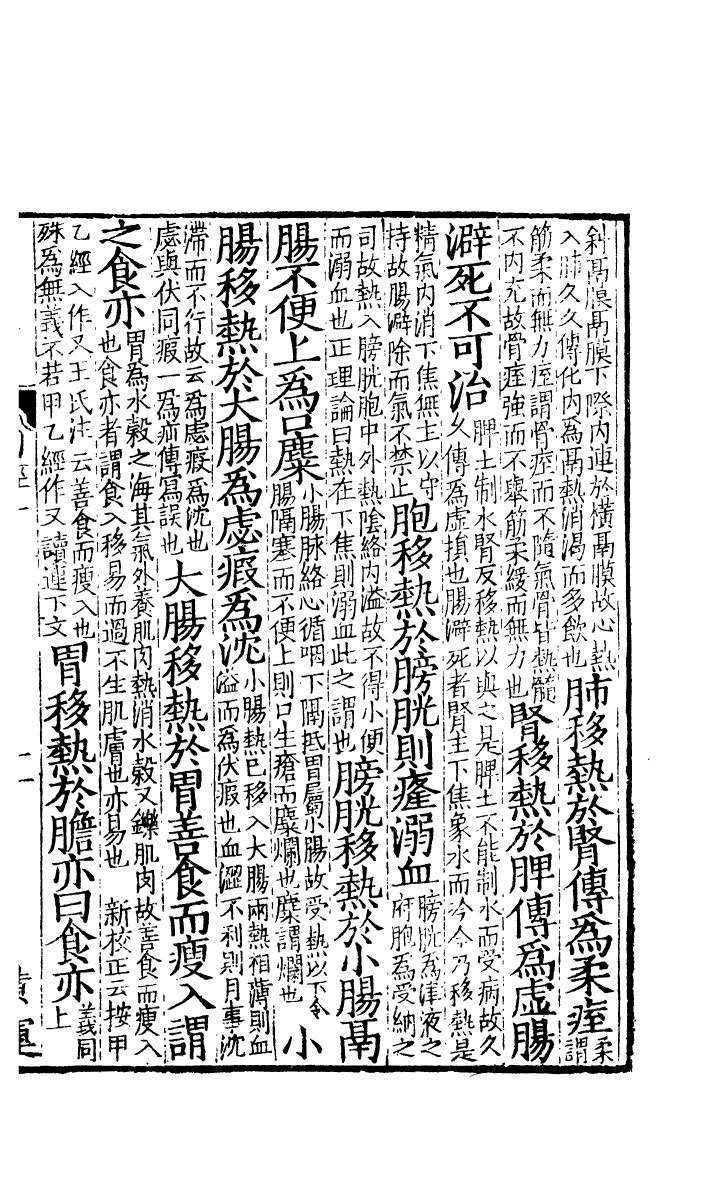 斜鬲脵鬲膜下際内連於橫鬲膜故心熱
入肺久久傳化内為鬲熱消渴而多飲也
肺移熱於腎傳為柔痓
柔
謂
筋柔而無力痓謂骨痓而不隨氣骨皆熱髓
不内充故骨痓強而不舉筋柔緩而無力也
腎移熱於脾傳為虛腸
澼死不可治
脾土制水腎反移熱以與之是脾土不能制水而受病故久
久傳為虛損也腸澼死者腎主下焦象水而冷今乃移熱是
精氣内消下焦無主以守
持故腸澼除而氣不禁止
胞移熱於膀胱則癃溺血
膀胱為津液之
府胞為受納之
司故熱入膀胱胞中外熱陰絡内溢故不得小便
而溺血也正理論曰熱在下焦則溺血此之謂也
膀胱移熱於小腸鬲
腸不便上為口麋
小腸脉絡心循咽下隔抵胃屬小腸故受熱以下令
腸隔塞而不便上則口生瘡而麋爛也麋謂爛也
小
腸移熱於大腸為虙瘕為沈
小腸熱已移入大腸兩熱相薄則血
溢而為伏瘕也血澀不利則月事沈
滯而不行故云為虙瘕為沈也
虙與伏同瘕一為疝傳寫誤也
大腸移熱於胃善食而瘦入謂
之食亦
胃為水穀之海其氣外養肌肉熱消水穀又鑠肌肉故善食而瘦入
也食亦者謂食入移易而過不生肌膚也亦易也 新校正云按甲
乙經入作又王氏注云善食而瘦入也
殊為無義不若甲乙經作又讀連下文
胃移熱於膽亦曰食亦
義同
上